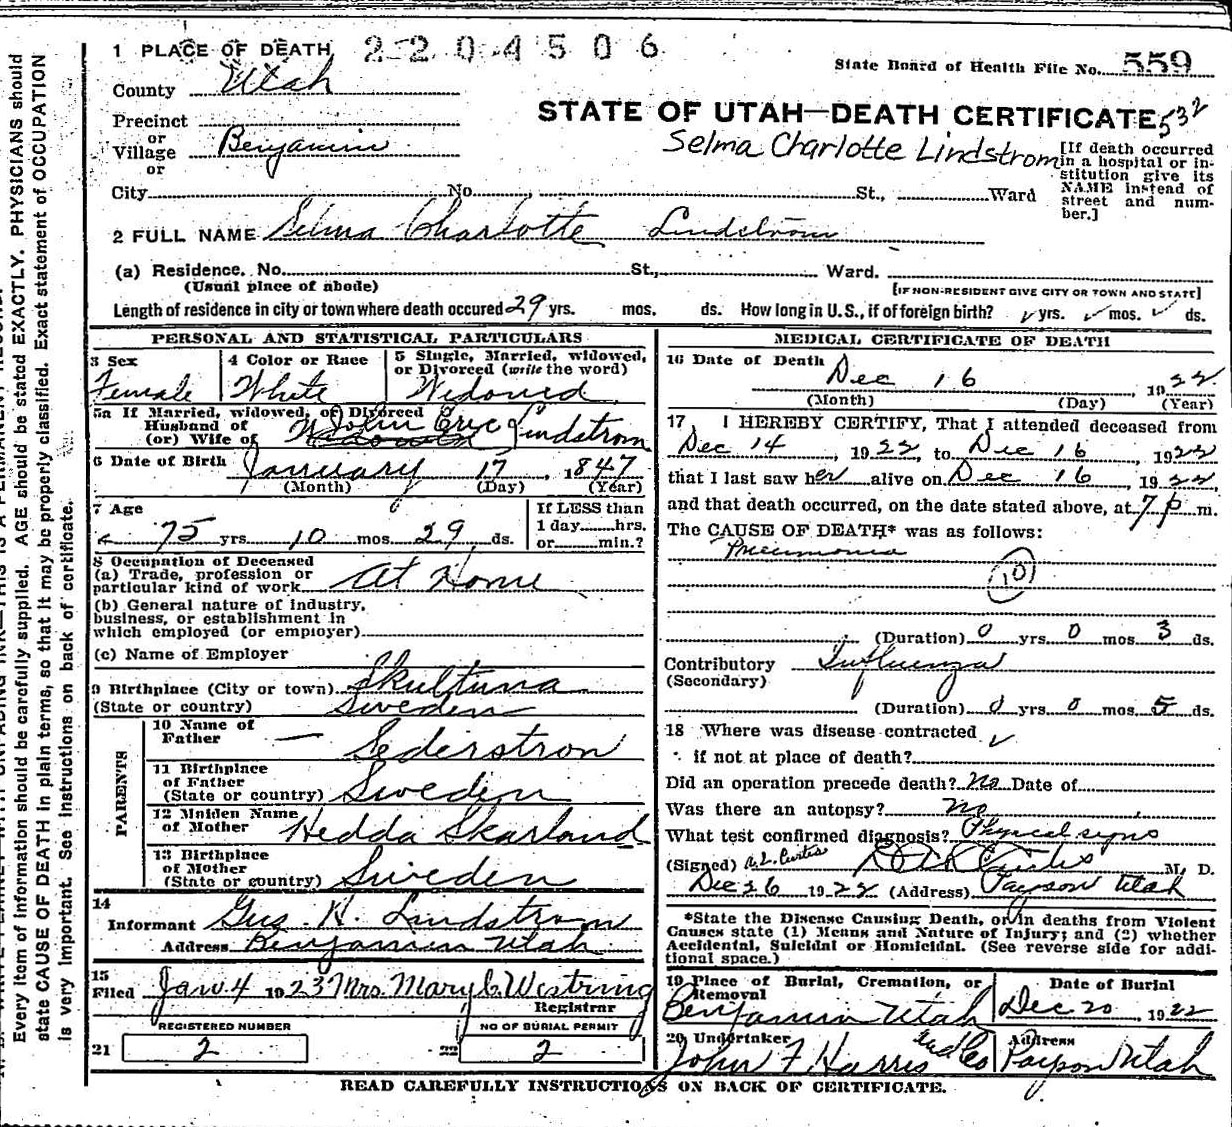 1 PLACE OF DEARTH 2204506
State Board of Health File No. 559
County Utah
STATE OF UTAH—DEATH CERTIFICATE 532
Precinct
or
Village Benjamin
or
Selma Charlotte Lindstrom
[If death occurred in a hospital or institution give its NAME instead of street and number.]
City No. St., Ward
2 FULL NAME Selma Charlotte Lindström
(a) Residence. No. St., Ward.
(Usual place of abode)
[IF NON-RESIDENT GIVE CITY OR TOWN AND STATE]
Length of residence in city or town where death occured 29 yrs. mos. ds. How long in U.S., if of foreign birth? yrs. mos. ds.
PERSONAL AND STATISTICAL PARTICULARS
3 Sex
Female
4 Color or Race
White
5 Single, Married, widowed,
or Divorced (write the word)
Widowed
5a If Married, widowed, or Divorced
Husband of
(or) Wife of John Eric Lindstrom
6 Date of Birth January 17, 1847
(Month) (Day) (Year)
7 Age
75 yrs 10 mos. 29 ds.
If LESS than
1 day hrs.
or min.?
8 Occupation of Deceased
(a) Trade, profession or
particular kind of work At Home
(b) General nature of industry,
business, or establishment in
which employed (or employer)
(c) Name of Employer
9 Birthplace (City or town) Skultuna
(State or country) Sweden
PARENTS
10 Name of
Father — Sederstron
11 Birthplace
of Father
(State or country) Sweden
12 Maiden Name
of Mother Hedda Skarland
13 Birthplace
of Mother
(State or country) Sweden
14
Informant Gus. H. Lindstrom
Address Benjamin Utah
15
Filed Jan 4 1923 Mrs. Mary C. Westring
Registrar
REGISTERED NUMBER
21 2
NO OF BURIAL PERMIT
22 2
MEDICAL CERTIFICATE OF DEATH
16 Date of Death
Dec 16, 1922
(Month) (Day) (Year)
17 I HEREBY CERTIFY, That I attended deceased from
Dec 14, 1922, to Dec 16, 1922
that I last saw her alive on Dec 16, 1922,
and that death occurred, on the date stated above, at 7 p m.
The CAUSE OF DEATH* was as follows:
Pneumonia
(10)
(Duration) 0 yrs. 0 mos. 3 ds.
Contributory Influenza
(Secondary)
(Duration) 0 yrs. 0 mos. 5 ds.
18 Where was disease contracted
if not at place of death?
Did an operation precede death? No Date of
Was there an autopsy? No
What test confirmed diagnosis? Physical signs
(Signed) A. L. Curtis M. D.
Dec 26 1922 (Address) Payson Utah
*State the Disease Causing Death, or in deaths from Violent
Causes state (1) Means and Nature of Injury; and (2) whether
Accidental, Suicidal or Homicidal. (See reverse side for addi-
tional space.)
19 Place of Burial, Cremation, or
Removal
Benjamin Utah
Date of Burial
Dec 20, 1922
20 Undertaker
John F Harris Und Co
Address
Payson Utah
READ CAREFULLY INSTRUCTIONS ON BACK OF CERTIFICATE.
Every item of information should be carefully supplied. AGE should be stated EXACTLY. PHYSICIANS should
state CAUSE OF DEATH in plain terms, so that it may be properly classified. Exact statement of OCCUPATION
is very important. See instructions on back of certificate.